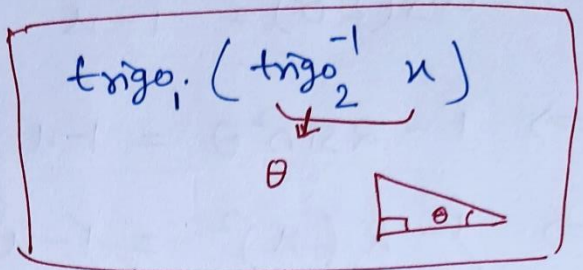 trigo₁ ( trigo₂⁻¹ x )
θ
θ